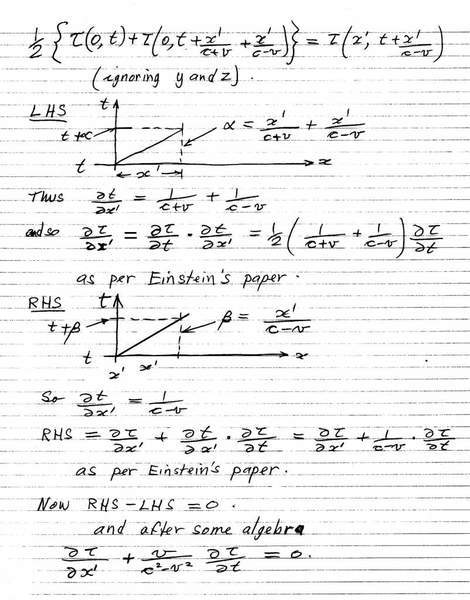 ½ { τ(0, t) + τ(0, t + x'/(c+v) + x'/(c−v)) } = τ(x', t + x'/(c−v))
(ignoring y and z).
LHS
t
t+α
α = x'/(c+v) + x'/(c−v)
t
x
x'
Thus ∂t/∂x' = 1/(c+v) + 1/(c−v)
and so ∂τ/∂x' = ∂τ/∂t · ∂t/∂x' = ½ (1/(c+v) + 1/(c−v)) ∂τ/∂t
as per Einstein's paper.
RHS
t
t+β
β = x'/(c−v)
t
x
x' x'
So ∂t/∂x' = 1/(c−v)
RHS = ∂τ/∂x' + ∂t/∂x' · ∂τ/∂t = ∂τ/∂x' + 1/(c−v) · ∂τ/∂t
as per Einstein's paper.
Now RHS − LHS = 0.
and after some algebra
∂τ/∂x' + v/(c²−v²) ∂τ/∂t = 0.